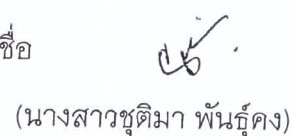 ชื่อ
(นางสาวชุติมา พันธุ์คง)